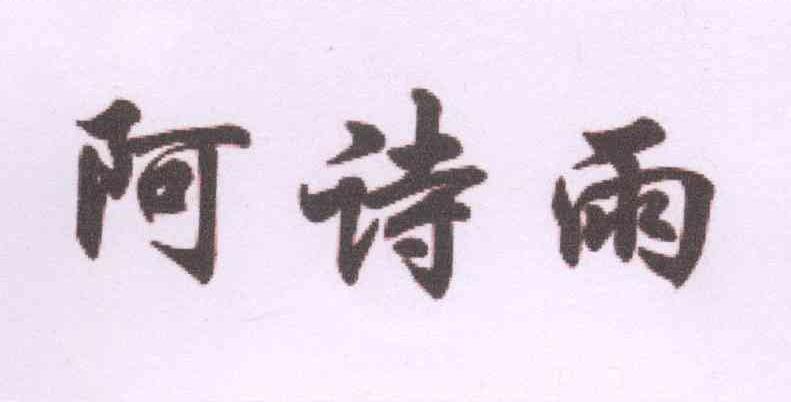 阿诗雨